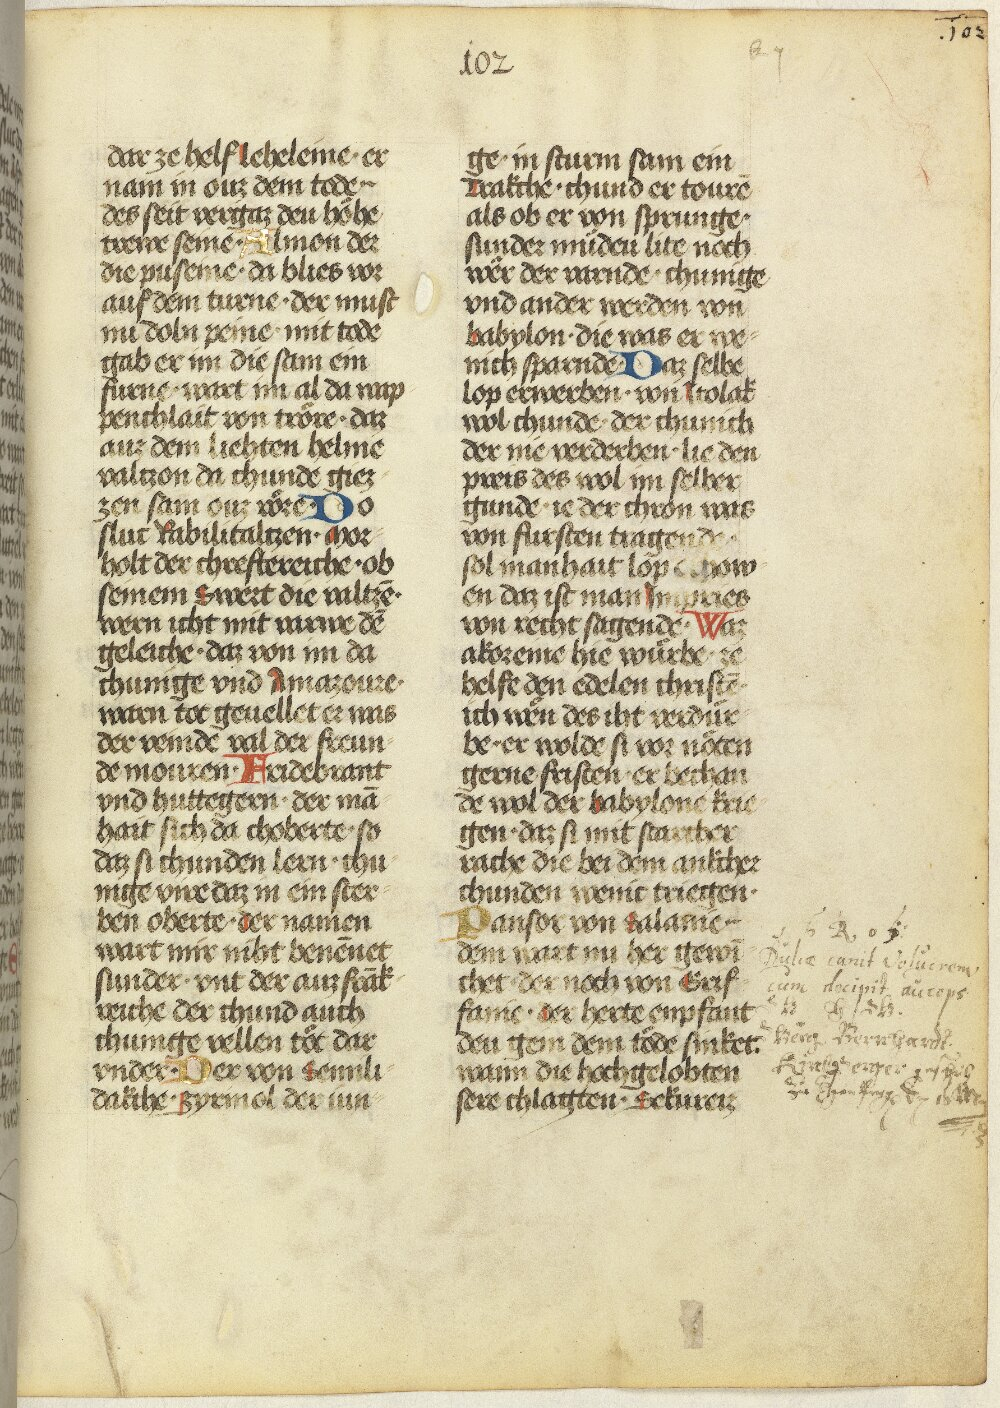 102
.102
dar ze helf leheleine · er
nam in ouz dem tode ·
des seit vergaz den höhe
trewe seine · Almon der
die puseine · da blies vor
auf dem turne · der must
nu doln peine · mit tode
gab er im die sam ein
furne · wart im al da wap
penchlait von tröre · daz
auz dem liehten helme
valtzon da chunde giez
zen sam ouz röre · Do
sluc Rabilitaltzen · Mor
holt der chrestereiche · ob
seinem swert die valtzē ·
wern icht mit varwe dē
geleiche · daz von im da
chunige vnd Amazoure ·
warn tot geuellet er was
der veinde val der freun
de mouren · Fridebrant
vnd huttegern · der mā
hait sich da choberte · so
daz si chunden lern · chu
nige vire daz in ein ster
ben oberte · der namen
wart mir niht benēnet
sunder · vnt der auz frāk
reiche der chund auch
chunige vellen töt dar
vnder · Der von Sennli
dakche · Zyrmol der iun
ge · in sturm sam ein
Trakche · chund er tourē
als ob er von sprunge ·
sunder müden lite noch
wër der varnde · chunige
vnd ander werden von
babylon · die was er we
nich sparnde · Daz selbe
lop erwerben · von Itolak
wol chunde · der chunich
der nie verderben · lie den
preis des wol im selber
gunde · ie der chron was
von fursten tragende ·
sol manhait lop how
en daz ist man Impries
von recht sagende · Waz
akoreine hie würbe · ze
helfe den edelen christē ·
ich wën des iht verdür
be · er wolde si vor nöten
gerne fristen · er bechan
de wol der babylone krie
gen · daz si mit starcher
rache die bei dem ankcher
chunden wenic triegen ·
Pansor von Salanie ·
dem wart nu her gewī
chet · der noch von Grif
fanie · der herte enpfant
den gein dem töde sinket ·
wann die hochgelobten
sere chlagten · Sekureiz
Dulce canit Volucrem
cum decipit auceps